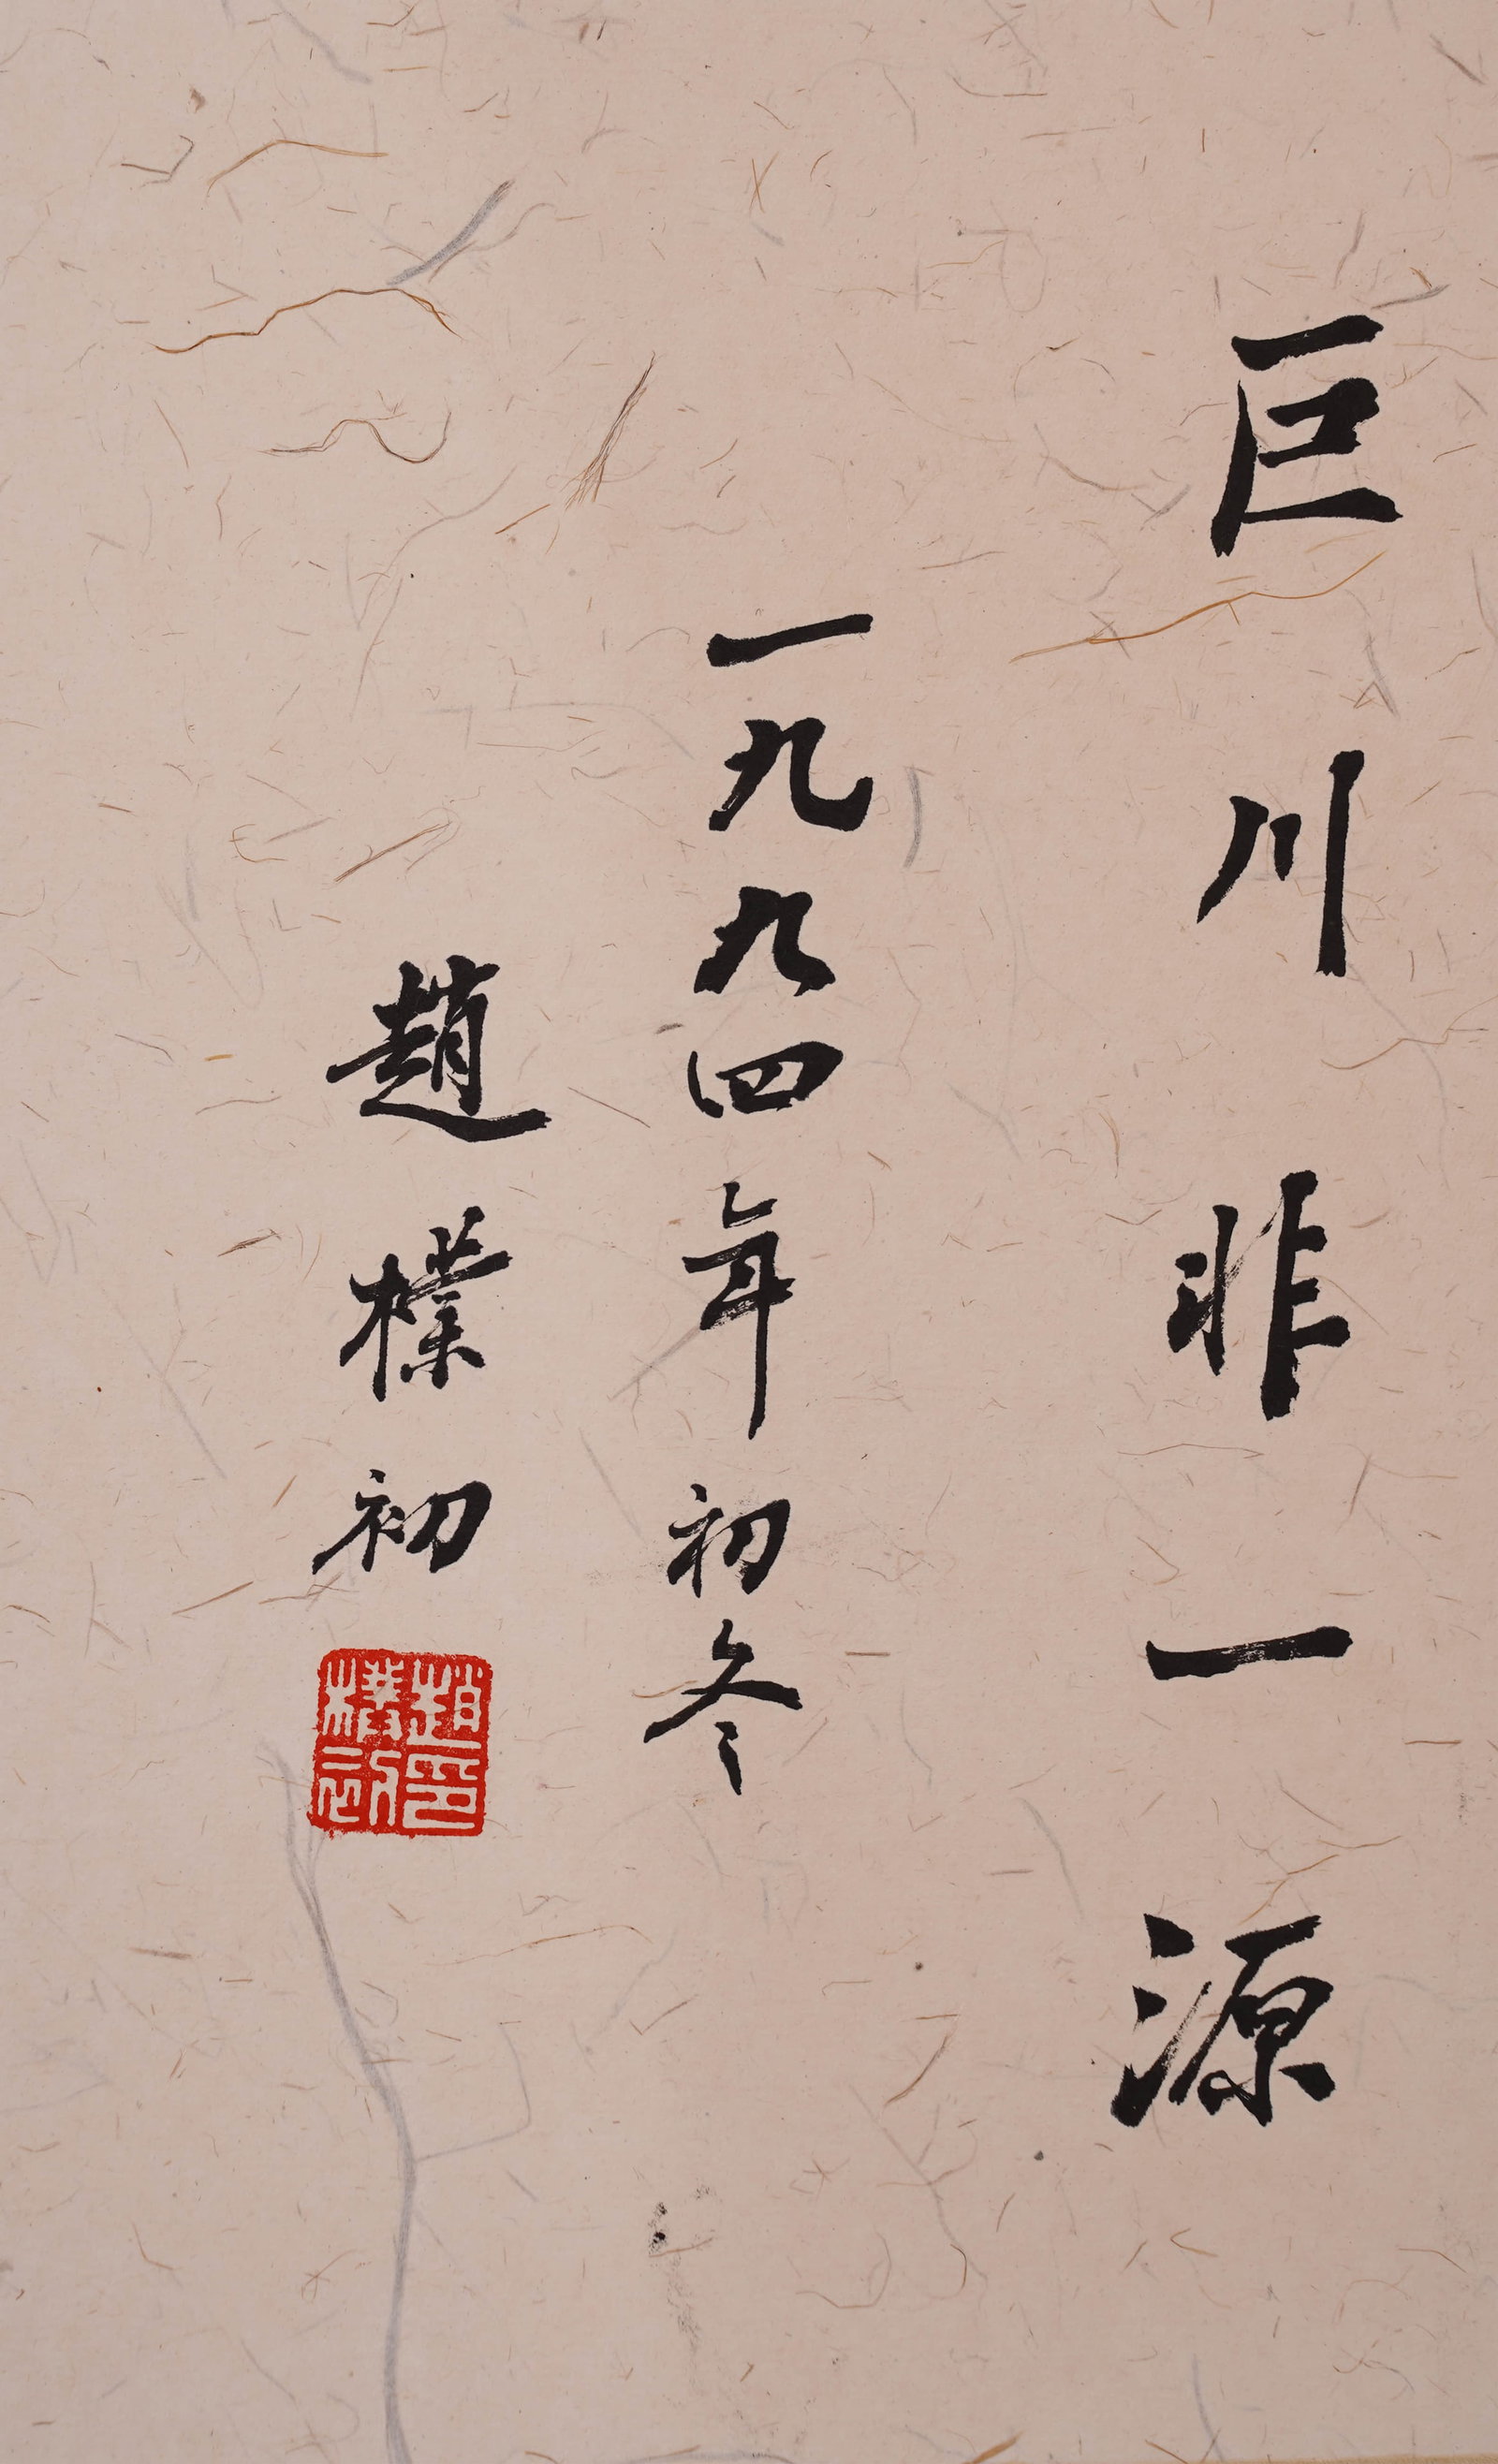 巨川非一源
一九九四年初冬
趙樸初
趙樸初印